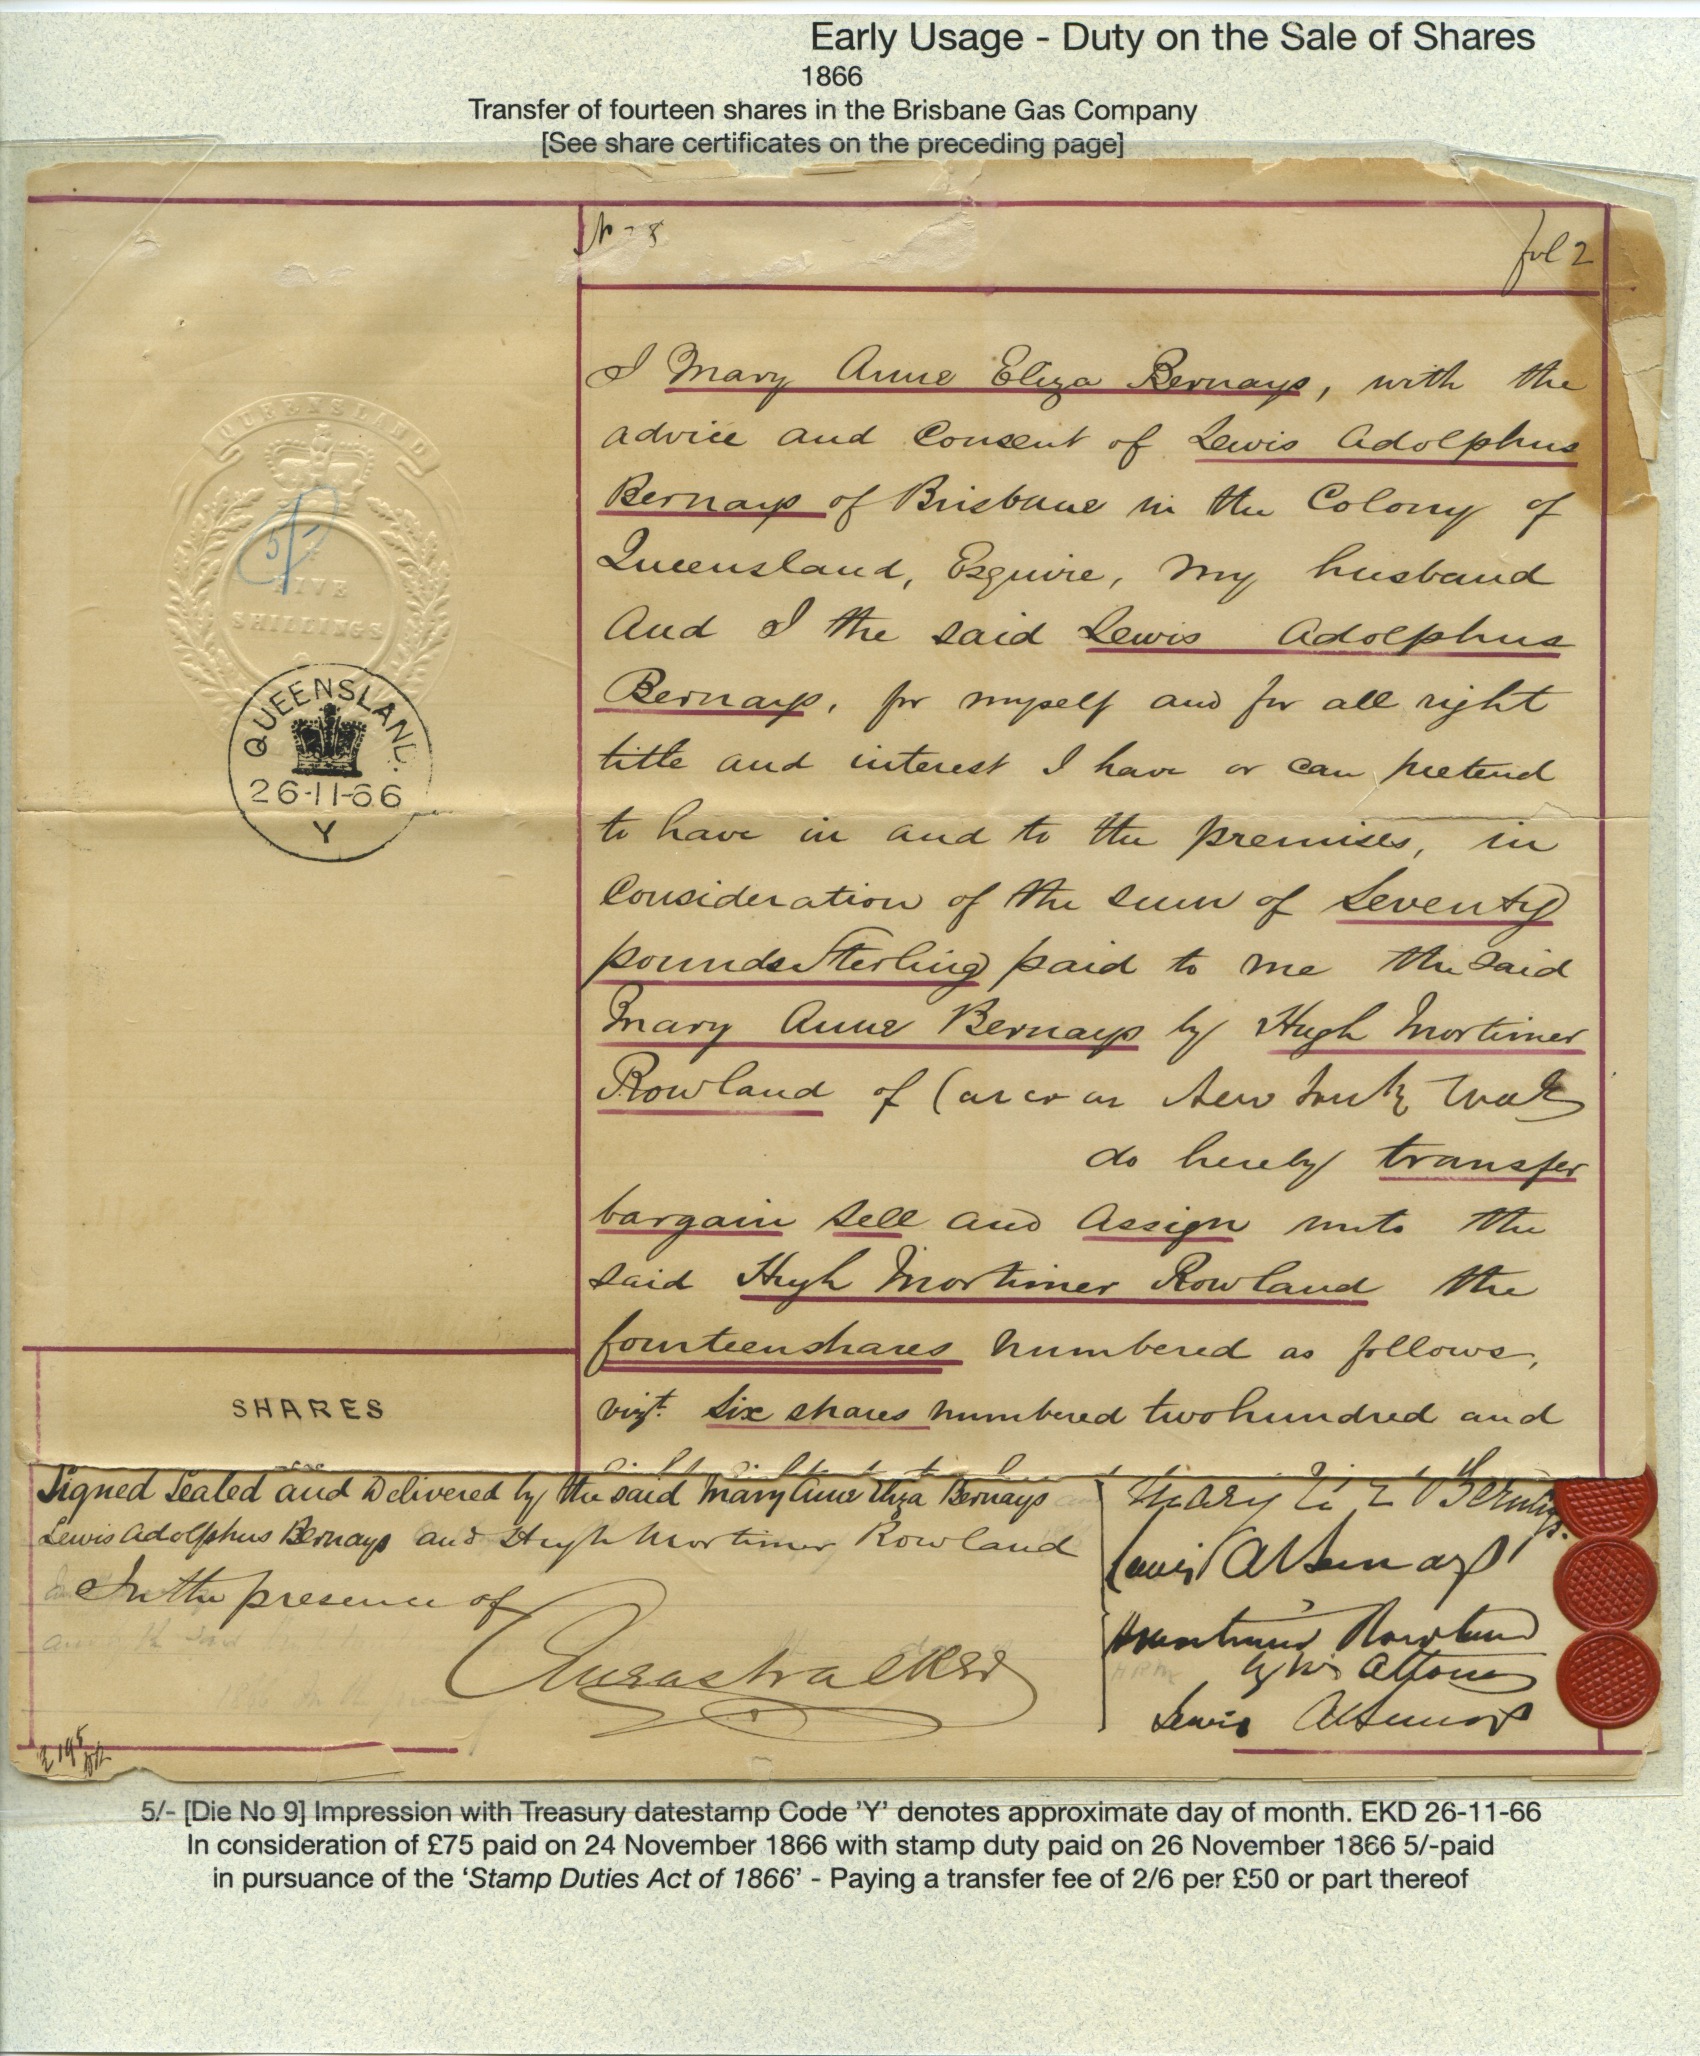 Early Usage - Duty on the Sale of Shares
1866
Transfer of fourteen shares in the Brisbane Gas Company
[See share certificates on the preceding page]
fol 2
I Mary Anne Eliza Bernays, with the
advice and consent of Lewis Adolphus
Bernays of Brisbane in the Colony of
Queensland, Esquire, my husband
And I the said Lewis Adolphus
Bernays, for myself and for all right
title and interest I have or can pretend
to have in and to the premises, in
Consideration of the sum of Seventy
pounds Sterling paid to me the said
Mary Anne Bernays by Hugh Mortimer
Rowland of
do hereby transfer
bargain sell and assign unto the
said Hugh Mortimer Rowland the
fourteen shares numbered as follows,
vizt. Six shares numbered two hundred and
QUEENSLAND
5/-
FIVE
SHILLINGS
QUEENSLAND.
26-11-66
Y
SHARES
Signed Sealed and Delivered by the said Mary Anne Eliza Bernays
Lewis Adolphus Bernays and Hugh Mortimer Rowland
In the presence of
Mary A E Bernays.
Lewis A Bernays
Rowland
by his Attorney
Lewis A Bernays
5/- [Die No 9] Impression with Treasury datestamp Code 'Y' denotes approximate day of month. EKD 26-11-66
In consideration of £75 paid on 24 November 1866 with stamp duty paid on 26 November 1866 5/-paid
in pursuance of the 'Stamp Duties Act of 1866' - Paying a transfer fee of 2/6 per £50 or part thereof